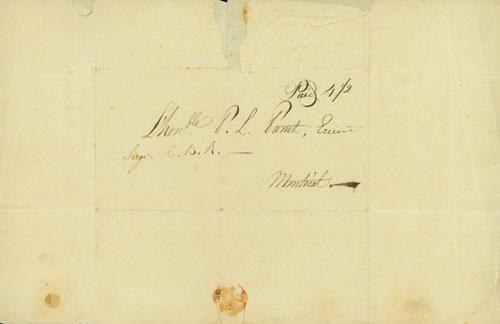 Paid 4/2
L'honble P. L. Panet, Ecuier
Juge C. B. R. —
Montréal. —